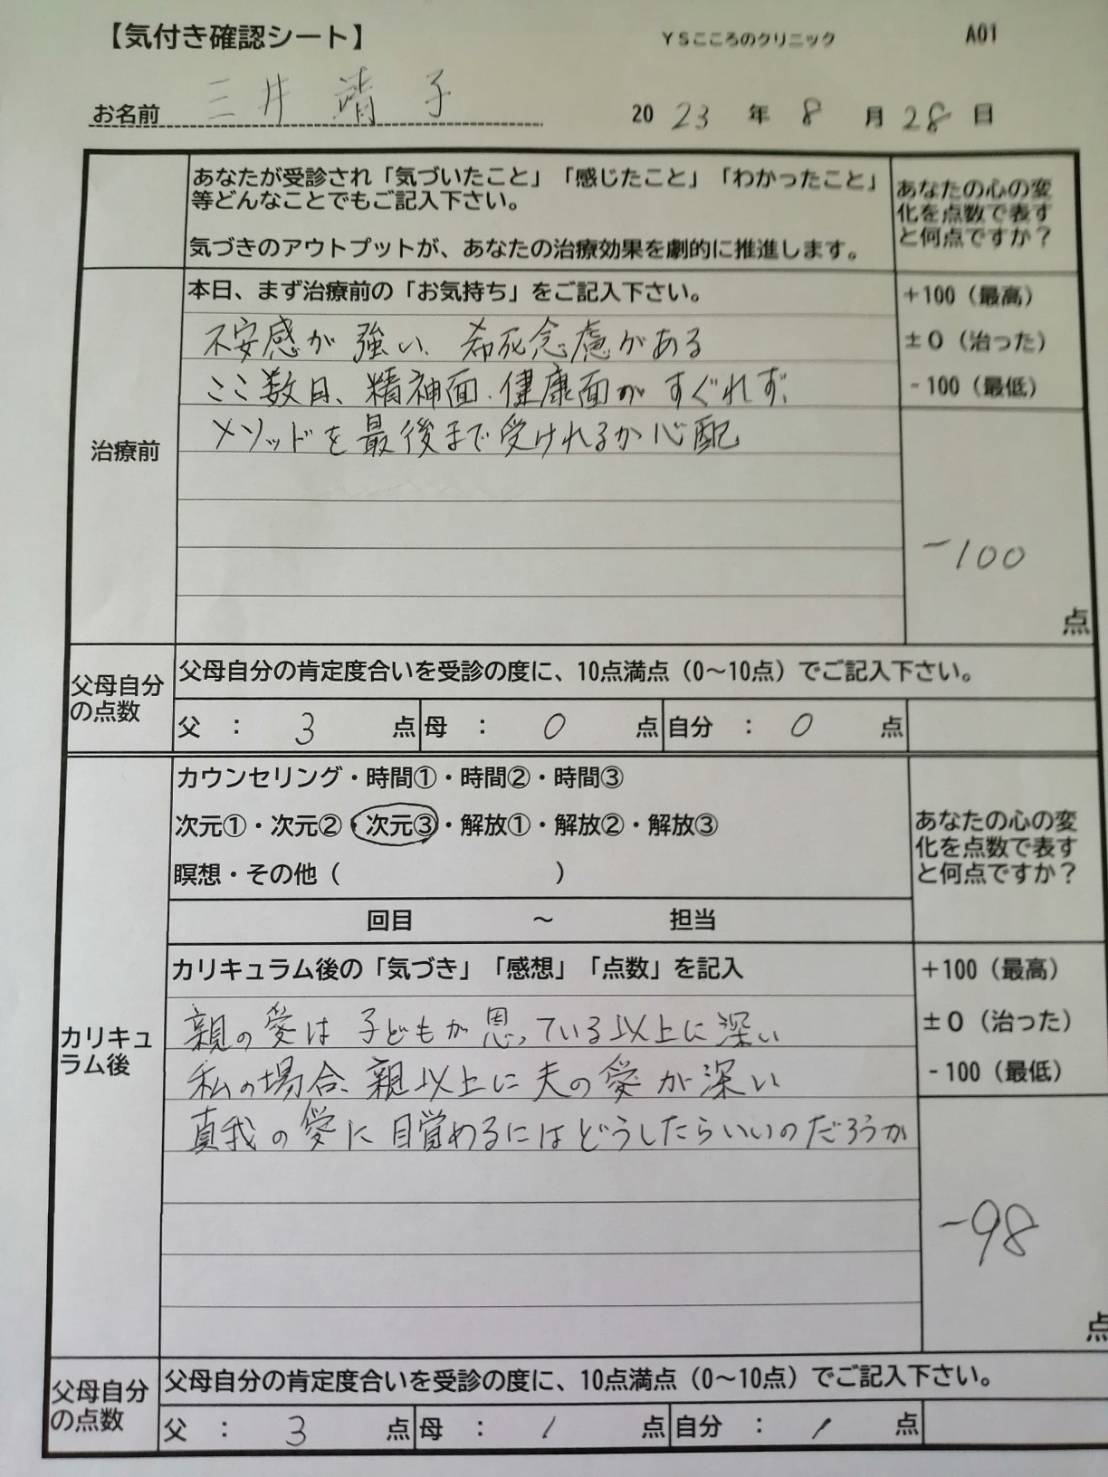 【気付き確認シート】 YSこころのクリニック A01
お名前 三井 靖子 2023年8月28日
あなたが受診され「気づいたこと」「感じたこと」「わかったこと」
等どんなことでもご記入下さい。
気づきのアウトプットが、あなたの治療効果を劇的に推進します。
あなたの心の変
化を点数で表す
と何点ですか?
治療前
本日、まず治療前の「お気持ち」をご記入下さい。
不安感が強い、希死念慮がある
ここ数日、精神面、健康面がすぐれず、
メソッドを最後まで受けれるか心配
+100(最高)
±0(治った)
-100(最低)
-100
点
父母自分
の点数
父母自分の肯定度合いを受診の度に、10点満点(0~10点)でご記入下さい。
父 : 3 点 母 : 0 点 自分 : 0 点
カリキュ
ラム後
カウンセリング・時間①・時間②・時間③
次元①・次元②・次元③・解放①・解放②・解放③
瞑想・その他( )
回目 ~ 担当
あなたの心の変
化を点数で表す
と何点ですか?
カリキュラム後の「気づき」「感想」「点数」を記入
親の愛は子どもが思っている以上に深い
私の場合、親以上に夫の愛が深い
真我の愛に目覚めるにはどうしたらいいのだろうか
+100(最高)
±0(治った)
-100(最低)
-98
点
父母自分
の点数
父母自分の肯定度合いを受診の度に、10点満点(0~10点)でご記入下さい。
父 : 3 点 母 : 1 点 自分 : 1 点